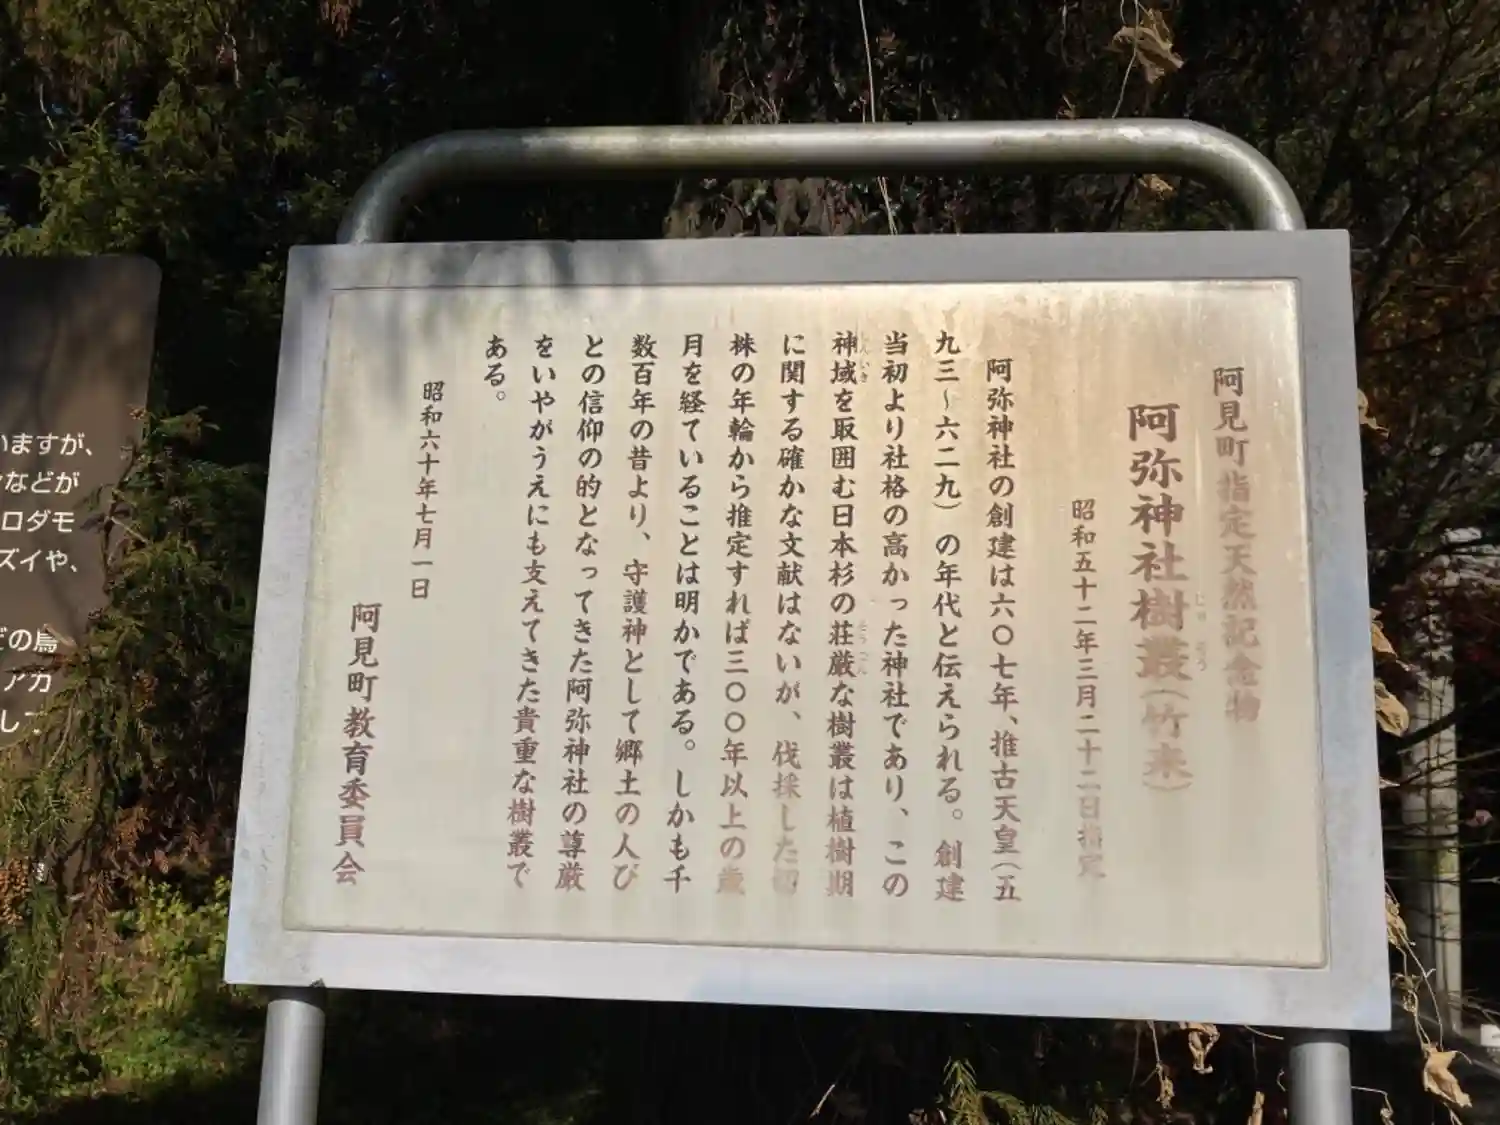 阿見町指定天然記念物
阿弥神社樹叢（竹来）
じゅ そう
昭和五十二年三月二十二日指定
阿弥神社の創建は六〇七年、推古天皇（五
九三〜六二九）の年代と伝えられる。創建
当初より社格の高かった神社であり、この
神域を取囲む日本杉の荘厳な樹叢は植樹期
に関する確かな文献はないが、伐採した切
株の年輪から推定すれば三〇〇年以上の歳
月を経ていることは明かである。しかも千
数百年の昔より、守護神として郷土の人び
との信仰の的となってきた阿弥神社の尊厳
をいやがうえにも支えてきた貴重な樹叢で
ある。
昭和六十年七月一日
阿見町教育委員会
いますが、
などが
ロダモ
ズイや、
どの鳥
アカ
して